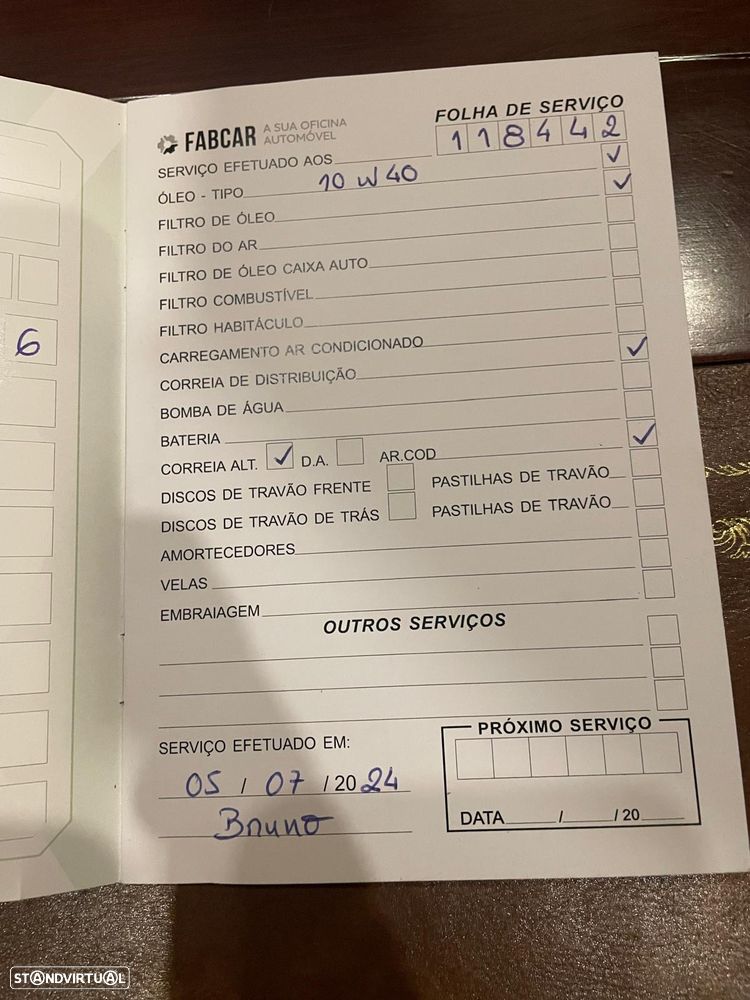 FABCAR A SUA OFICINA AUTOMÓVEL
FOLHA DE SERVIÇO
SERVIÇO EFETUADO AOS 118442
ÓLEO - TIPO 10 W 40 ✓
FILTRO DE ÓLEO ✓
FILTRO DO AR
FILTRO DE ÓLEO CAIXA AUTO
FILTRO COMBUSTÍVEL
FILTRO HABITÁCULO
CARREGAMENTO AR CONDICIONADO
CORREIA DE DISTRIBUIÇÃO ✓
BOMBA DE ÁGUA
BATERIA
CORREIA ALT. ✓ D.A. AR.COD ✓
DISCOS DE TRAVÃO FRENTE PASTILHAS DE TRAVÃO
DISCOS DE TRAVÃO DE TRÁS PASTILHAS DE TRAVÃO
AMORTECEDORES
VELAS
EMBRAIAGEM
OUTROS SERVIÇOS
SERVIÇO EFETUADO EM:
05 / 07 / 2024
Bruno
PRÓXIMO SERVIÇO
DATA / / 20
6
STANDVIRTUAL